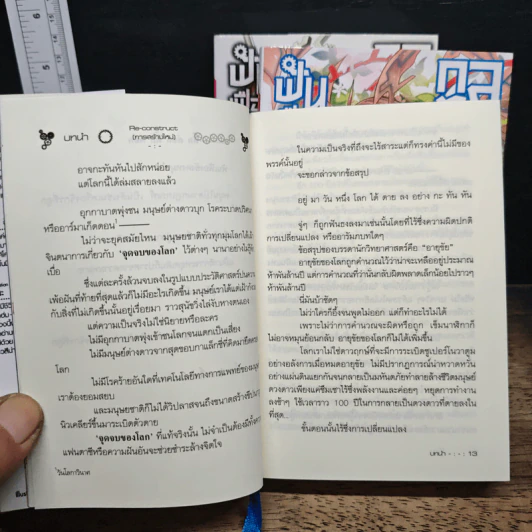 บทนำ
Re-construct
(การสร้างใหม่)
อาจกะทันหันไปสักหน่อย
แต่โลกนี้ได้ล่มสลายลงแล้ว
อุกกาบาตพุ่งชน มนุษย์ต่างดาวบุก โรคระบาดปริศนา
หรืออาร์มาเก็ดดอน
ไม่ว่าจะยุคสมัยไหน มนุษยชาติทั่วทุกมุมโลกได้
จินตนาการเกี่ยวกับ 'จุดจบของโลก' ไว้ต่างๆ นานาอย่างไม่รู้
เบื่อ
ซึ่งแต่ละครั้งล้วนจบลงในรูปแบบประวัติศาสตร์
เพ้อฝันที่ท้ายที่สุดแล้วก็ไม่มีอะไรเกิดขึ้น มนุษย์เราได้แต่
กับสิ่งที่ไม่เกิดขึ้นนั้นอยู่เรื่อยมา ราวสุนัขวิ่งไล่งับหางตนเอง
แต่ความเป็นจริงไม่ใช่นิยายหรือละคร
ไม่มีอุกกาบาตพุ่งเข้าชนโลกจนแตกเป็นเสี่ยง
ไม่มีมนุษย์ต่างดาวจากสุดขอบกาแล็กซี่ที่คิดมายึด
โลก
ไม่มีโรคร้ายอันใดที่เทคโนโลยีทางการแพทย์ของ
เราต้องยอมสยบ
และมนุษยชาติก็ไม่ได้วิปลาสจนถึงขนาดสร้าง
นิวเคลียร์ขึ้นมาระเบิดตัวตาย
'จุดจบของโลก' ที่แท้จริงนั้น ไม่จำเป็นต้องมีทั้ง
แฟนตาซีหรือความฝันอันจะช่วยชำระล้างจิตใจ
วันโลกาวินาศ
ในความเป็นจริงที่ถึงจะไร้สาระแต่ก็ทรงค่านี้ไม่มีของ
พรรค์นั้นอยู่
จะขอกล่าวจากข้อสรุป
อยู่ มา วัน หนึ่ง โลก ได้ ตาย ลง อย่าง กะ ทัน หัน
จู่ๆ ก็ถูกพันธงลงมาเช่นนั้นโดยที่ไร้ซึ่งความผิดปกติ
การเปลี่ยนแปลง หรืออารัมภบทใดๆ
ข้อสรุปของบรรดานักวิทยาศาสตร์คือ "อายุขัย"
อายุขัยของโลกถูกคำนวณไว้ว่าน่าจะเหลืออยู่ประมาณ
ห้าพันล้านปี แต่การคำนวณที่ว่านั่นกลับผิดพลาดเล็กน้อยไปราวๆ
ห้าพันล้านปี
นี่มันบ้าชัดๆ
ไม่ว่าใครก็ยิ่งจนพูดไม่ออก แต่ก็ทำอะไรไม่ได้
เพราะไม่ว่าการคำนวณจะผิดหรือถูก เข็มนาฬิกาก็
ไม่อาจหมุนย้อนกลับ อายุขัยของโลกก็ไม่ได้เพิ่มขึ้น
โลกเราไม่ใช่ดาวฤกษ์ที่จะมีการระเบิดซูเปอร์โนวาตูม
อย่างอลังการเมื่อหมดอายุขัย ไม่มีปรากฏการณ์น่าหวาดหวั่น
อย่างแผ่นดินแยกกันจนกลายเป็นมหันตภัยทำลายล้างชีวิตมนุษย์
ดวงดาวเพียงแค่ซึมเซาไร้ซึ่งพลังงานและค่อยๆ หยุดการทำงาน
ลงช้าๆ ใช้เวลาราว 100 ปีในการกลายเป็นดวงดาวที่ตายลงใน
ที่สุด
ขั้นตอนนั้นไร้ซึ่งการเปลี่ยนแปลง
บทนำ - : - : 13